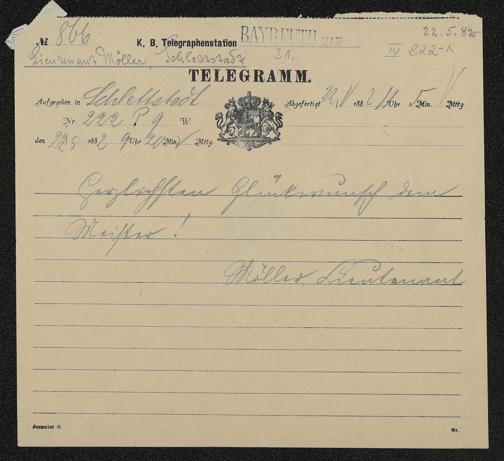 № 866 K. B. Telegraphenstation BAYREUTH STADT 22.5.82
Lieutenant Möller, Schlettstadt 31. IV B22-1
TELEGRAMM.
Aufgegeben in Schlettstadt Abgefertigt 22/V 1882 11 Uhr 5 Min. V Mttg
Nr. 222 P. 9 W.
den 22/5 1882 9 Uhr 20 Min. V Mttg.
Herzlichsten Glückwunsch dem
Meister!
Möller, Lieutenant
Formular G. Gr.